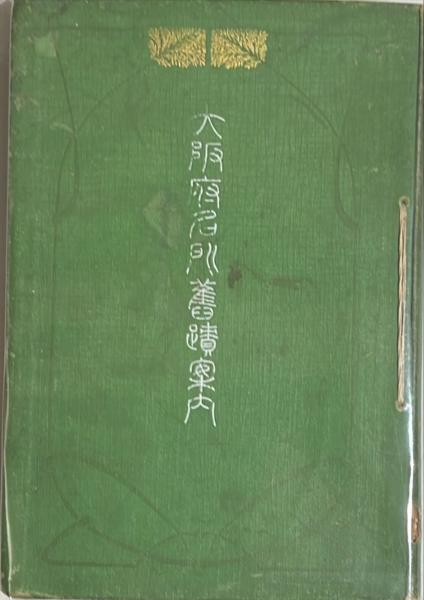 大阪府名所舊蹟案内